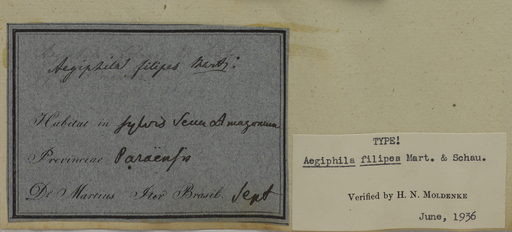 Aegiphila filipes Mart:
Habitat in sylvis Amazonum
Provinciae Paraënsis
De Martius Iter Brasil. Sept
TYPE!
Aegiphila filipes Mart. & Schau.
Verified by H. N. MOLDENKE
June, 1936